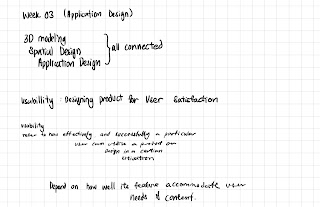 Week 03 (Application Design)
3D modeling
Spatial Design
Application Design
all connected
Usability : Designing product for User Satisfaction
usability
refer to how effectively and successfully a particular
user can utilize a product or
design in a certain
situation
Depend on how well its feature accommodate user
needs & content.